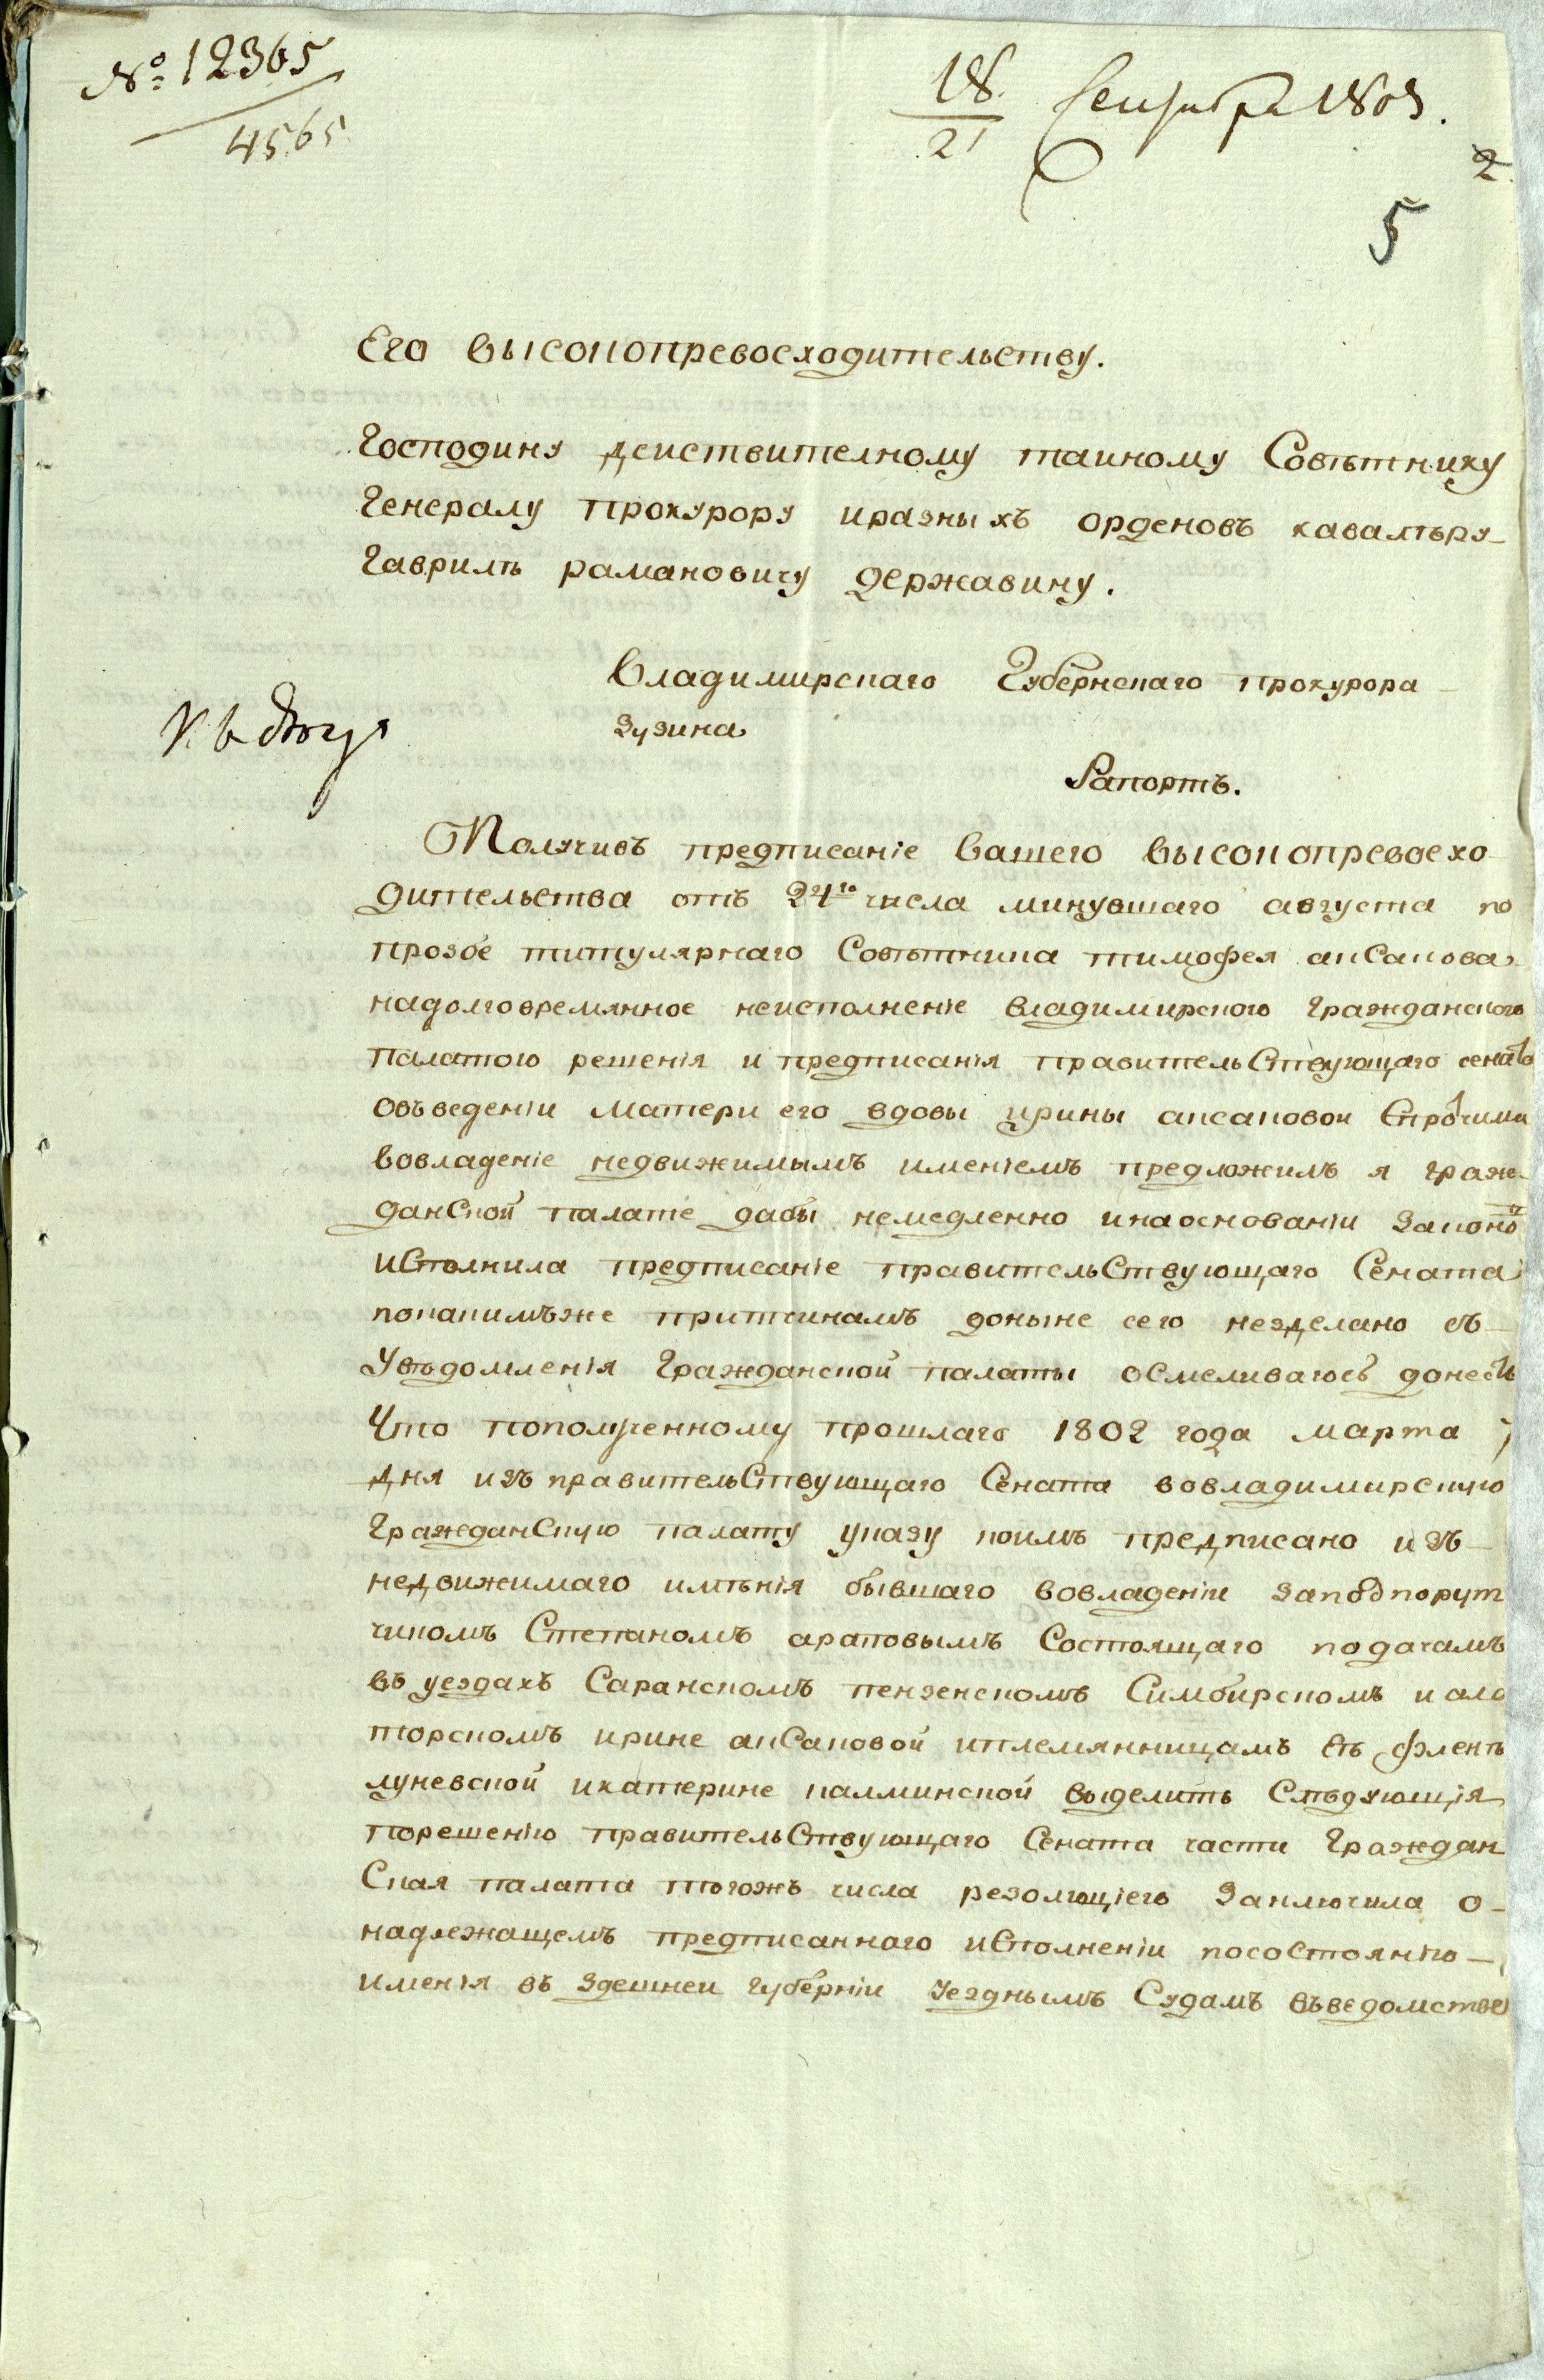 № 12365
4565
18 Сентября 1803.
21
2
5
Его высокопревосходительству.
Господину действителному таиному Совѣтнику
Генералу прокурору иразныхъ орденовъ кавалѣру
Гаврилѣ рамановичу державину.
Владимирскаго Губернскаго прокурора
Зузина
Рапортъ.
Получивъ предписанiе вашего высокопревосхо
дительства отъ 24го числа минувшаго августа по
прозбе титулярнаго Совѣтника тимофея аксакова
надолговремянное неисполненiе владимирскою гражданскою
палатою решенiя и предписанiя правительствующаго сената
обьведенiи матери его вдовы ирины аксаковои спрочими
вовладенiе недвижимымъ именiемъ предложилъ я граж
данской палате дабы немедленно инаоснованiи законо
исполнила предписанiе правительствующаго Сената
покакимъже притчинамъ доныне сего незделано съ
Увѣдомленiя Гражданской палаты осмеливаюсь донести
Что пополученному прошлаго 1802 года марта
дня изъ правительствующаго Сената вовладимирскую
гражданскую палату указу коимъ предписано изъ
недвижимаго имѣнiя бывшаго вовладенiи заподпорут
чикомъ Степаномъ араповымъ Состоящаго подачамъ
въ уездахъ Саранскомъ пензенскомъ Симбирскомъ и ала
торскомъ ирине аксаковой иплемянницамъ еѣ фленѣ
луневской икатерине калминской выделить Слѣдующiя
порешенiю правительствующаго Сената части Граждан
Ская палата тогожъ числа резолюцiею Заключила о
надлежащемъ предписаннаго исполненiи посостоянiю
именiя въ здешнеи губернiи уезднымъ Судамъ въведомстве